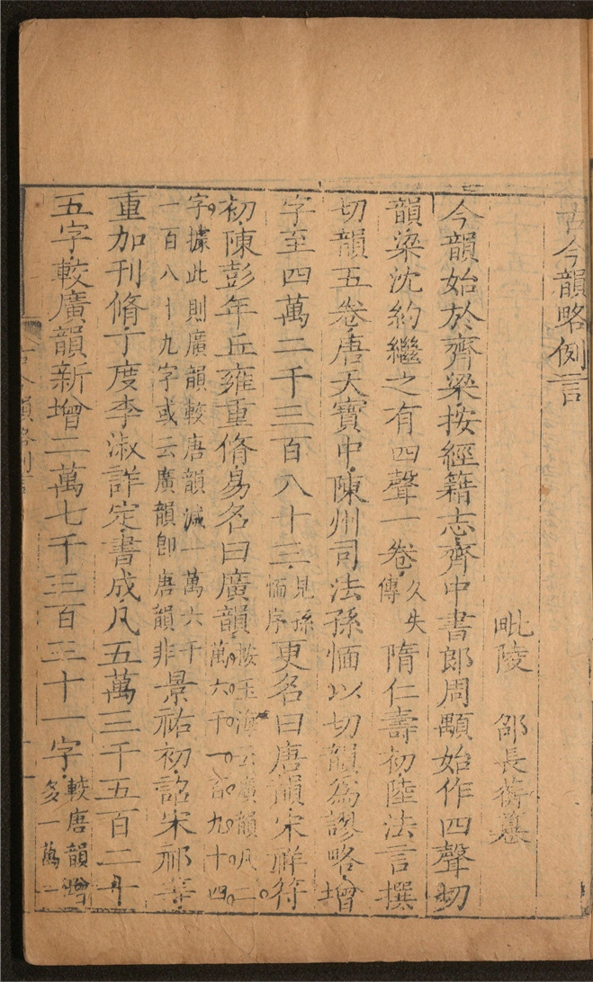 古今韻略例言
毗陵　邵長蘅纂
今韻始於齊梁按經籍志齊中書郎周顒始作四聲切
韻梁沈約繼之有四聲一卷久失傳隋仁壽初陸法言撰
切韻五卷唐天寶中陳州司法孫愐以切韻為謬略增
字至四萬二千三百八十三見孫愐序更名曰唐韻宋祥符
初陳彭年丘雍重脩易名曰廣韻按玉海云廣韻凡二萬六千一百九十四
字據此則廣韻較唐韻減一萬六千一百八十九字或云廣韻即唐韻非景祐初詔宋祁等
重加刊脩丁度李淑詳定書成凡五萬三千五百二十
五字較廣韻新增二萬七千三百三十一字較唐韻增多一萬一